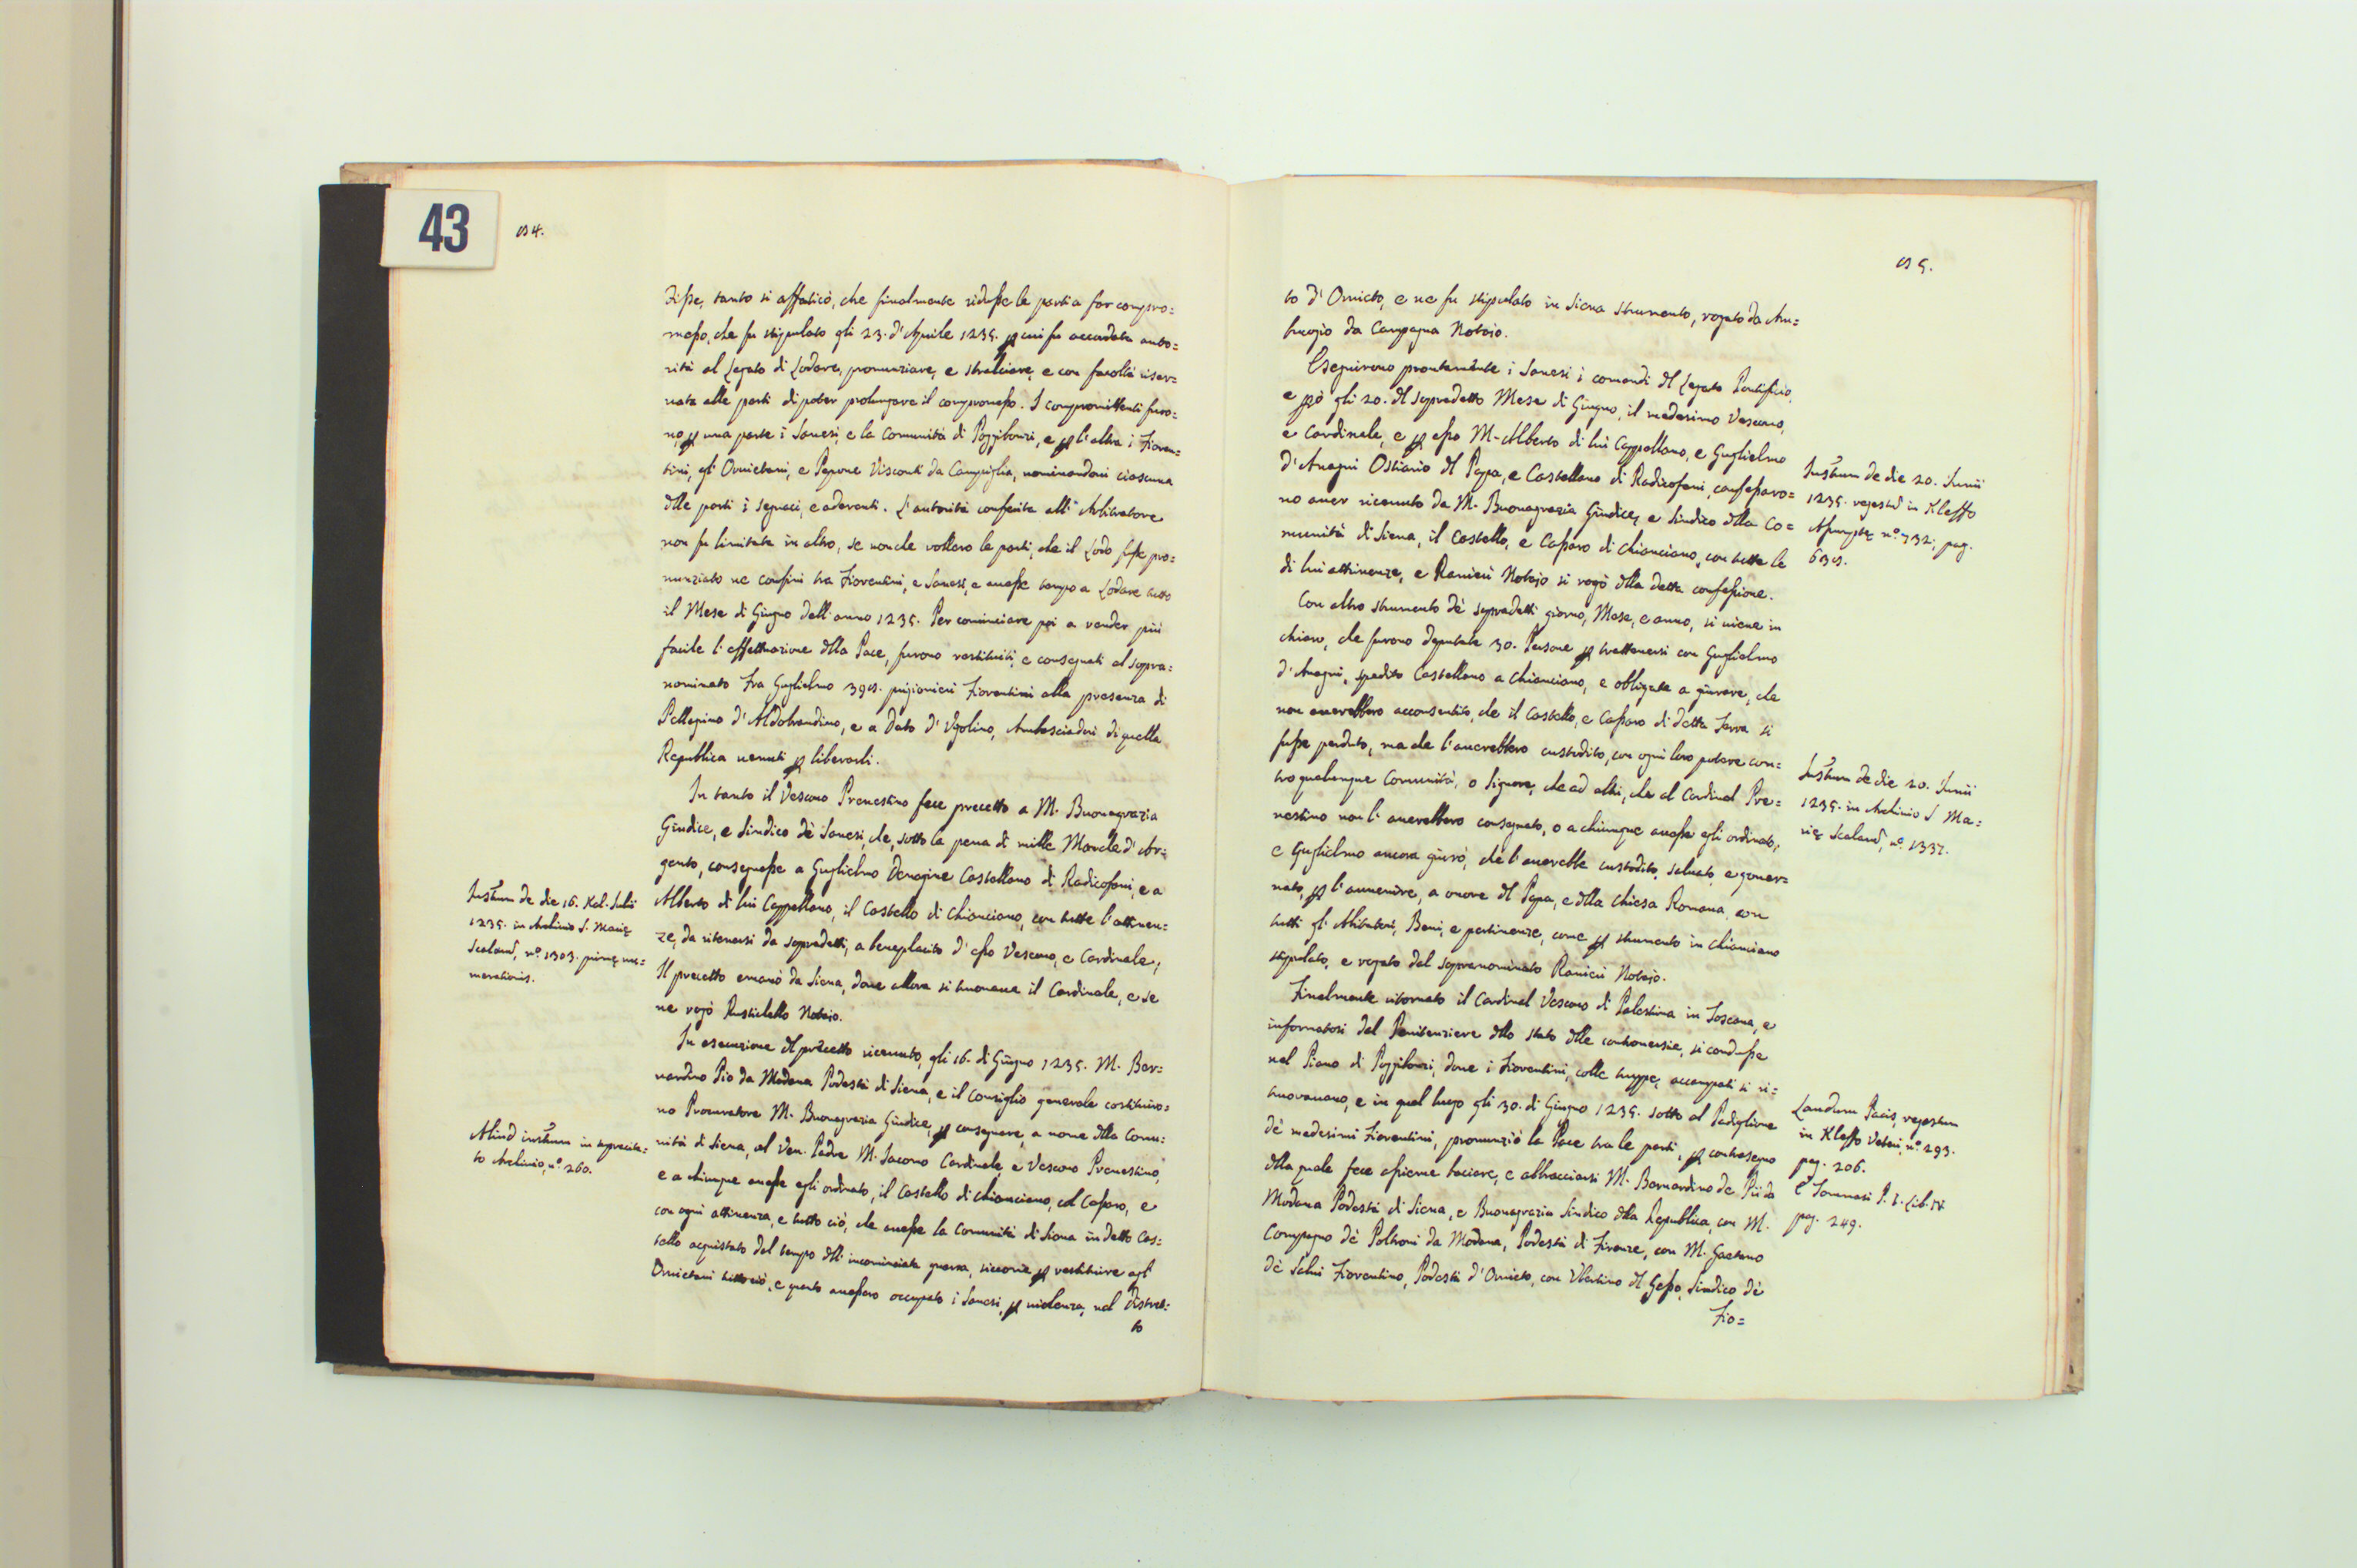 43
84.
disse, tanto si affaticò, che finalmente ridusse le parti a far compro=
messo, che fu stipulato gli 23. d'Aprile 1235. p cui fu accordata auto=
rità al Legato di Lodare, pronunziare, e stralciare, e con facoltà riser=
vata alle parti di poter prolungare il compromesso. I compromittenti furo=
no, p una parte i Sanesi, e la Comunità di Poggibonzi, e p l'altra i Fioren=
tini, gl'Orvietani, e Pepone Visconti da Campiglia, nominandovi ciascuna
dlle parti i seguaci, e aderenti. L'autorità conferita all'Arbitratore
non fu limitata in altro, se nonche vollero le parti, che il Lodo fusse pro=
nunziato ne confini tra Fiorentini, e Sanesi, e avesse tempo a Lodare tutto
il Mese di Giugno dell'anno 1235. Per cominciare poi a render più
facile l'effettuazione dlla Pace, furono restituiti, e consegnati al sopra=
nominato Fra Guglielmo 398. prigionieri Fiorentini alla presenza di
Pellegrino d'Aldobrandino, e a Dato d'Ugolino, Ambasciadori di quella
Republica venuti p liberarli.
In tanto il Vescovo Prenestino fece precetto a M. Buonagrazia
Giudice, e Sindico dè Sanesi, che, sotto la pena di mille Marche d'Ar=
gento, consegnasse a Guglielmo Denagine Castellano di Radicofani, e a
Alberto di lui Cappellano, il Castello di Chianciano, con tutte l'attinen=
ze, da ritenersi da sopradetti, a beneplacito d'esso Vescovo, e Cardinale;
Il precetto emanò da Siena, dove allora si truovava il Cardinale, e se
ne rogò Rustichello Notaio.
In esecuzione dl precetto ricevuto, gli 16. di Giugno 1235. M. Ber=
nardino Pio da Modena Podestà di Siena, e il Consiglio generale costituiro=
no Procuratore M. Buonagrazia Giudice, p consegnare, a nome dlla Comu=
nità di Siena, al Ven. Padre M. Jacomo Cardinale, e Vescovo Prenestino,
e a chiunque avesse egli ordinato, il Castello di Chianciano, col Cassaro, e
con ogni attinenza, e tutto ciò, che avesse la Comunità di Siena in detto Cas=
tello acquistato dal tempo dll'incominciata guerra, siccome p restituire agl'
Orvietani tutto ciò, e quanto avessero occupato i Sanesi, p violenza, nel distret=
to
Instrum de die 16. Kal. Julii
1235. in Archivio S. Marię
Scalarũ, nº 1303. primę nu=
merationis.
Aliud instrum in sopracita=
to Archivio, nº 260.
85.
to d'Orvieto, e ne fu stipulato in Siena strumento, rogato da Am=
bruogio da Campagna Notaio.
Eseguirono prontamente i Sanesi i comandi dl Legato Pontificio,
e pò gli 20. dl sopradetto Mese di Giugno, il medesimo Vescovo,
e Cardinale, e p esso M. Alberto di lui Cappellano, e Guglielmo
d'Anagni Ostiario dl Papa, e Castellano di Radicofani, confessaro=
no aver ricevuto da M. Buonagrazia Giudice, e Sindico dlla Co=
munità di Siena, il Castello, e Cassaro di Chianciano, con tutte le
di lui attinenze, e Ranieri Notajo si rogò dlla detta confessione.
Con altro strumento dè sopradetti giorno, Mese, e anno, si viene in
chiaro, che furono deputate 30. Persone p trattenersi con Guglielmo
d'Anagni, spedito Castellano a Chianciano, e obbligate a giurare, che
non averebbero acconsentito, che il Castello, e Cassaro di detta Terra si
fusse perduto, ma che l'averebbero custodito, con ogni loro potere con=
tro qualunque Comunità, o Signore, che ad altri, che al Cardinal Pre=
nestino non l'averebbero consegnato, o a chiunque avesse egli ordinato;
e Guglielmo ancora giurò, che l'averebbe custodito, salvato, e gover=
nato, p l'avvenire, a onore dl Papa, e dlla Chiesa Romana, con
tutti gl'Abitatori, Beni, e pertinenze, come p strumento in Chianciano
stipulato, e rogato dal sopranominato Ranieri Notajo.
Finalmente ritornato il Cardinal Vescovo di Palestina in Toscana, e
informatosi dal Penitenziere dllo stato dlle controversie, si condusse
nel Piano di Poggibonzi, dove i Fiorentini, colle truppe, accampati si ri=
truovavano, e in quel luogo gli 30. di Giugno 1235. sotto al Padiglione
dè medesimi Fiorentini, pronunziò la Pace tra le parti, p contrasegno
dlla quale fece assieme baciare, e abbracciarsi M. Bernardino de Pii da
Modana Podestà di Siena, e Buonagrazia Sindico dlla Republica, con M.
Compagno dè Poltroni da Modana, Podestà di Firenze, con M. Gaetano
dè Salvi Fiorentino, Podestà d'Orvieto, con Ubertino dl Gesso, Sindico dè
Fio=
Instrum de die 20. Junii
1235. regestũ in Kleffo
Assumptę nº 732. pag.
638.
Instrum de die 20. Junii
1235. in Archivio S. Ma=
rię Scalarũ, nº 1337.
Laudum Pacis, regestum
in Kleffo Veteri, nº 293.
pag. 206.
e Tommasi P. I. Lib. IV.
pag. 249.